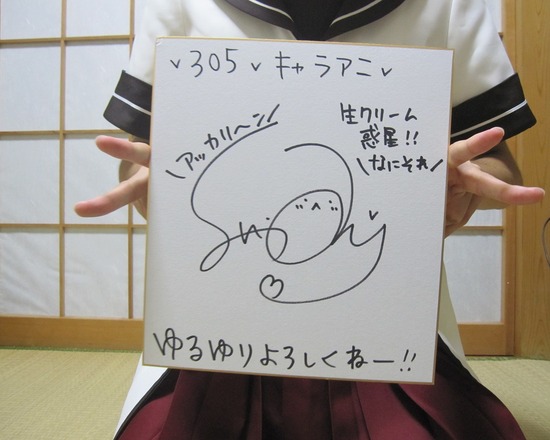 305 キャラアニ
\アッカリ〜ン/
生クリーム
惑星!!
\なにそれ/
ゆるゆりよろしくねー!!